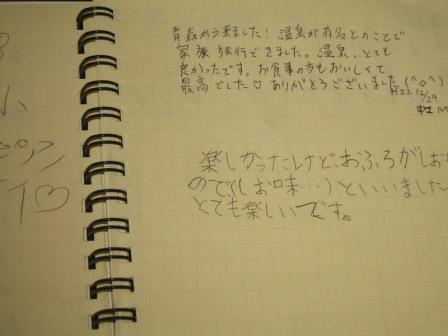 青森から来ました！温泉が有名とのことで
家族旅行できました。温泉、とても
良かったです。お食事の方もおいしくて
最高でした♡ ありがとうございました(^o^)
H22 12/29
楽しかったけど、おふろがしお
ので、(しお味…)といいました
とても楽しいです。